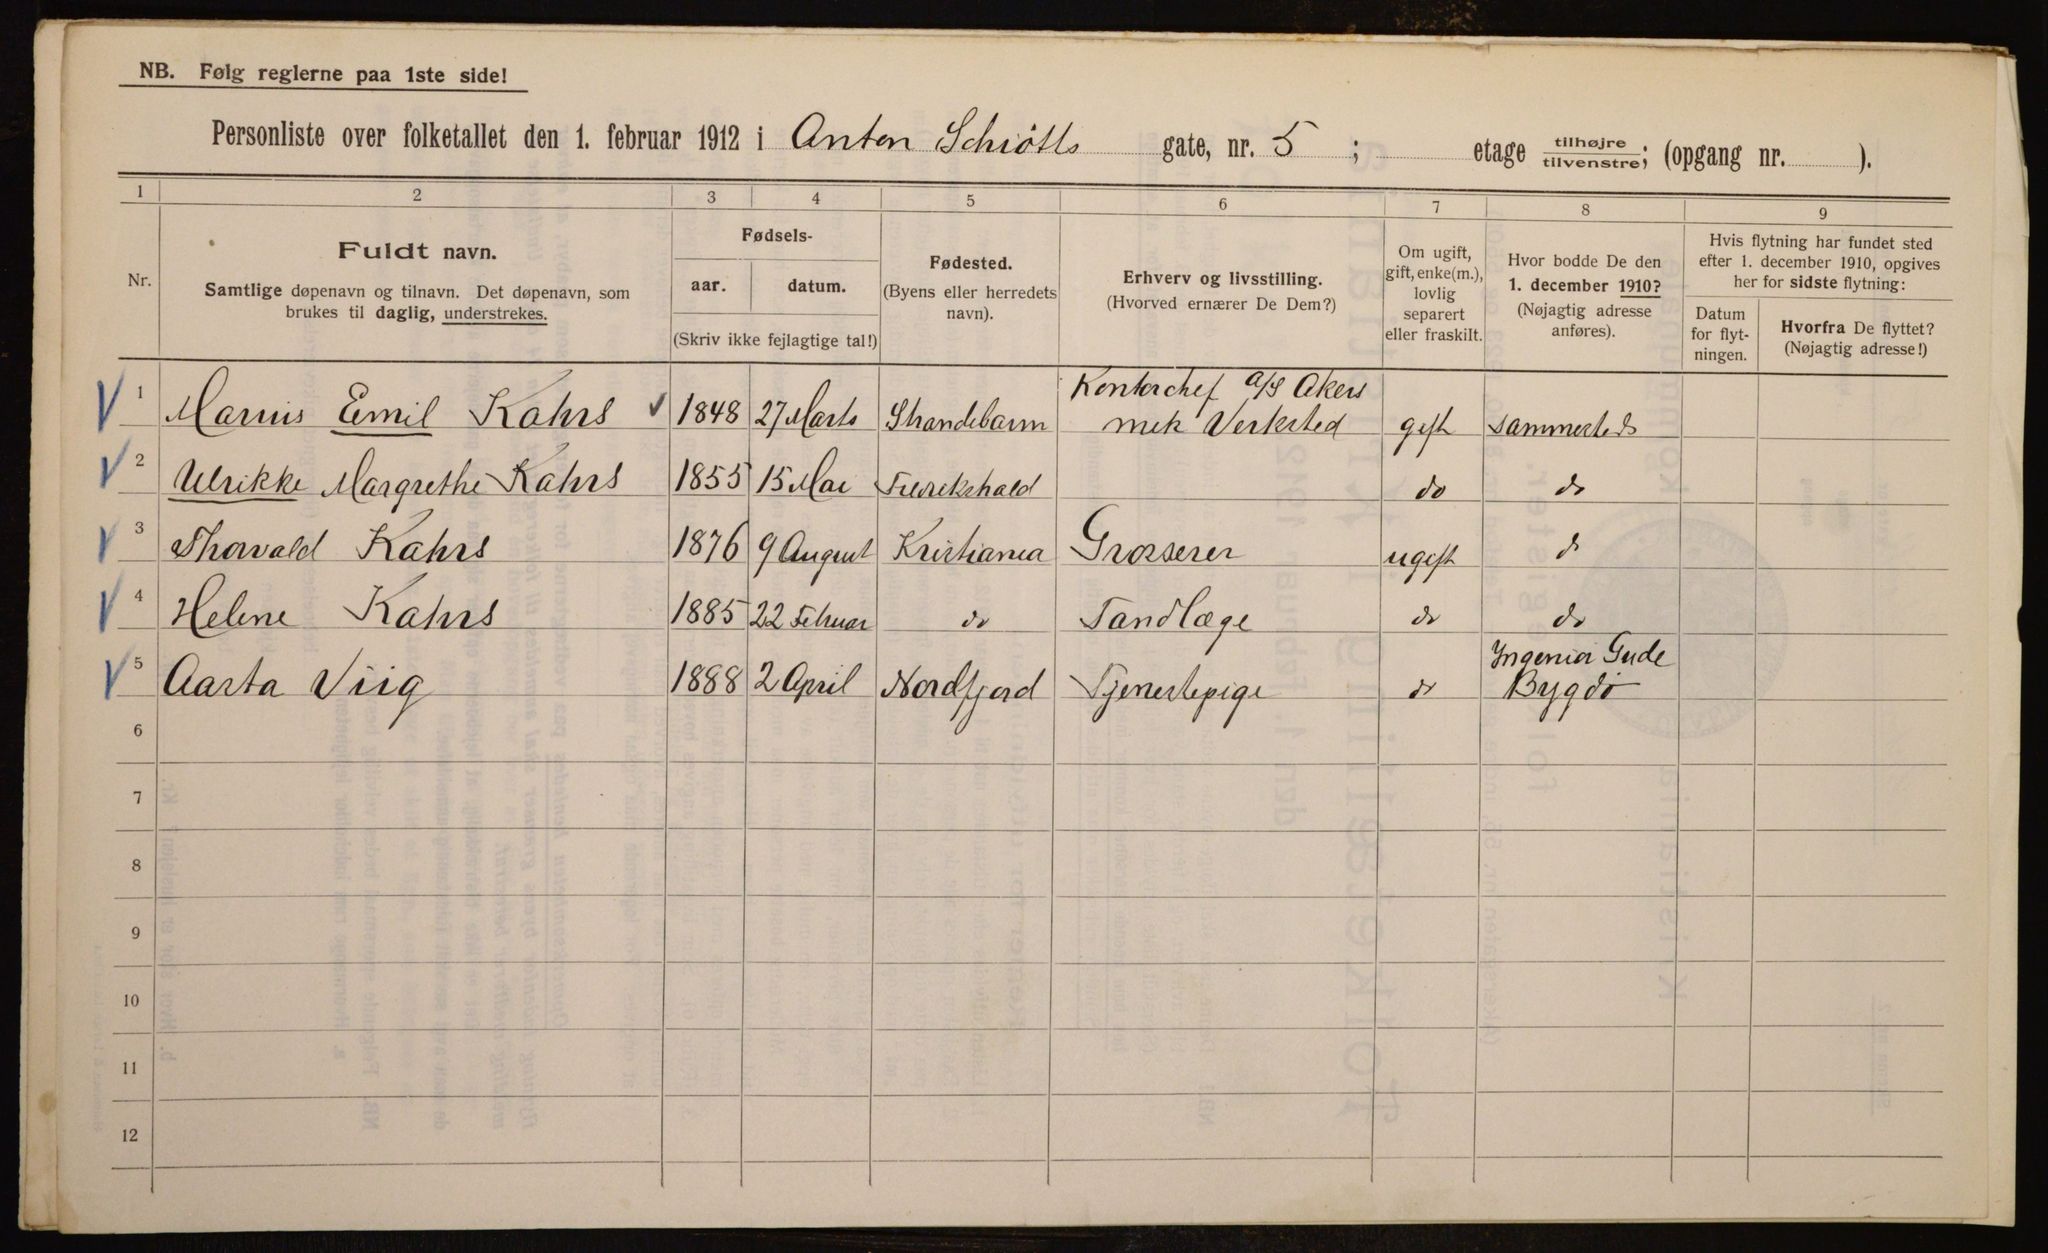 NB. Følg reglerne paa 1ste side!
Personliste over folketallet den 1. februar 1912 i Anton Schiötts gate, nr. 5 ; etage tilhøjre tilvenstre; (opgang nr. ).
1 2 3 4 5 6 7 8 9
Nr.
Fuldt navn.
Samtlige døpenavn og tilnavn. Det døpenavn, som
brukes til daglig, understrekes.
Fødsels-
aar. datum.
(Skriv ikke fejlagtige tal!)
Fødested.
(Byens eller herredets
navn).
Erhverv og livsstilling.
(Hvorved ernærer De Dem?)
Om ugift,
gift, enke(m.),
lovlig
separert
eller fraskilt.
Hvor bodde De den
1. december 1910?
(Nøjagtig adresse
anføres).
Hvis flytning har fundet sted
efter 1. december 1910, opgives
her for sidste flytning:
Datum
for flyt-
ningen.
Hvorfra De flyttet?
(Nøjagtig adresse!)
1 Marius Emil Kahrs 1848 27 Marts Strandebarm Kontorchef A/S Akers
mek Verksted gift sammesteds
2 Ulrikke Margrethe Kahrs 1855 15 Mai Fredrikshald do do
3 Thorvald Kahrs 1876 9 August Kristiania Grosserer ugift do
4 Helene Kahrs 1885 22 Februar do Tandlæge do do
5 Aasta Viig 1888 2 April Nordfjord Tjenestepige do Ingeniør Gude
Bygdö
6
7
8
9
10
11
12